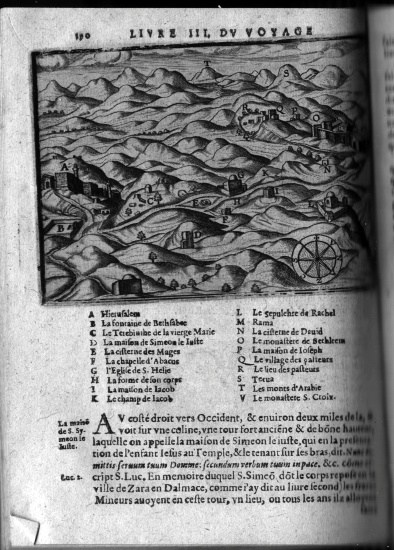 190 LIVRE III. DV VOYAGE
T
S
R
Q
P
O
N
A
C
E
G
K
B
D
A Hierusalem
B La fontaine de Bethsabee
C Le Terebinthe de la vierge Marie
D La maison de Simeon le Iuste
E La cisterne des Mages
F La chapelle d'Abacuc
G l'Eglise de S. Helie
H La forme de son corps
I La maison de Iacob
K Le champ de Iacob
L Le sepulchre de Rachel
M Rama
N La cisterne de Dauid
O Le monastere de Bethleem
P La maison de Ioseph
Q Le village des pasteurs
R Le lieu des pasteurs
S Terua
T Les monts d'Arabie
V Le monastere S. Croix.
La maisõ
de S. Sy
meon le
Iuste.
AV costé droit vers Occident, & enuiron deux miles de là,
voit sur vne coline, vne tour fort anciéne & de bõne hauteur,
laquelle on appelle la maison de Simeon le iuste, qui en la
tion de l'enfant Iesus au Temple, & le tenant sur ses bras, dit.
mittis seruum tuum Domine, secundum verbum tuum in pace, &c. cõme
Luc 2.
cript S. Luc, En memoire duquel S. Simeõ, dõt le corps repose
ville de Zara en Dalmace, comme i'ay dit au liure second, les
Mineurs auoyent en ceste tour, vn lieu, ou tous les ans ils